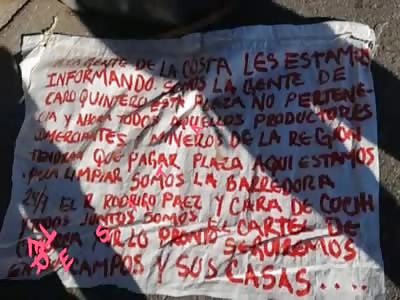 GENTE DE LA COSTA LES ESTAMOS
INFORMANDO SOMOS LA GENTE DE
CARO QUINTERO ESTA PLAZA NO PERTENE-
CIA Y AHORA TODOS AQUELLOS PRODUCTORES
COMERCIANTES MINEROS DE LA REGION
TENDRAN QUE PAGAR PLAZA AQUI ESTAMOS
PARA LIMPIAR SOMOS LA BARREDORA
24/7 EL R RODRIGO PAEZ Y CARA DE COCHI
Y TODOS JUNTOS SOMOS EL CARTEL DE
POR LO PRONTO SEGUIREMOS
CAMPOS Y SUS CASAS....